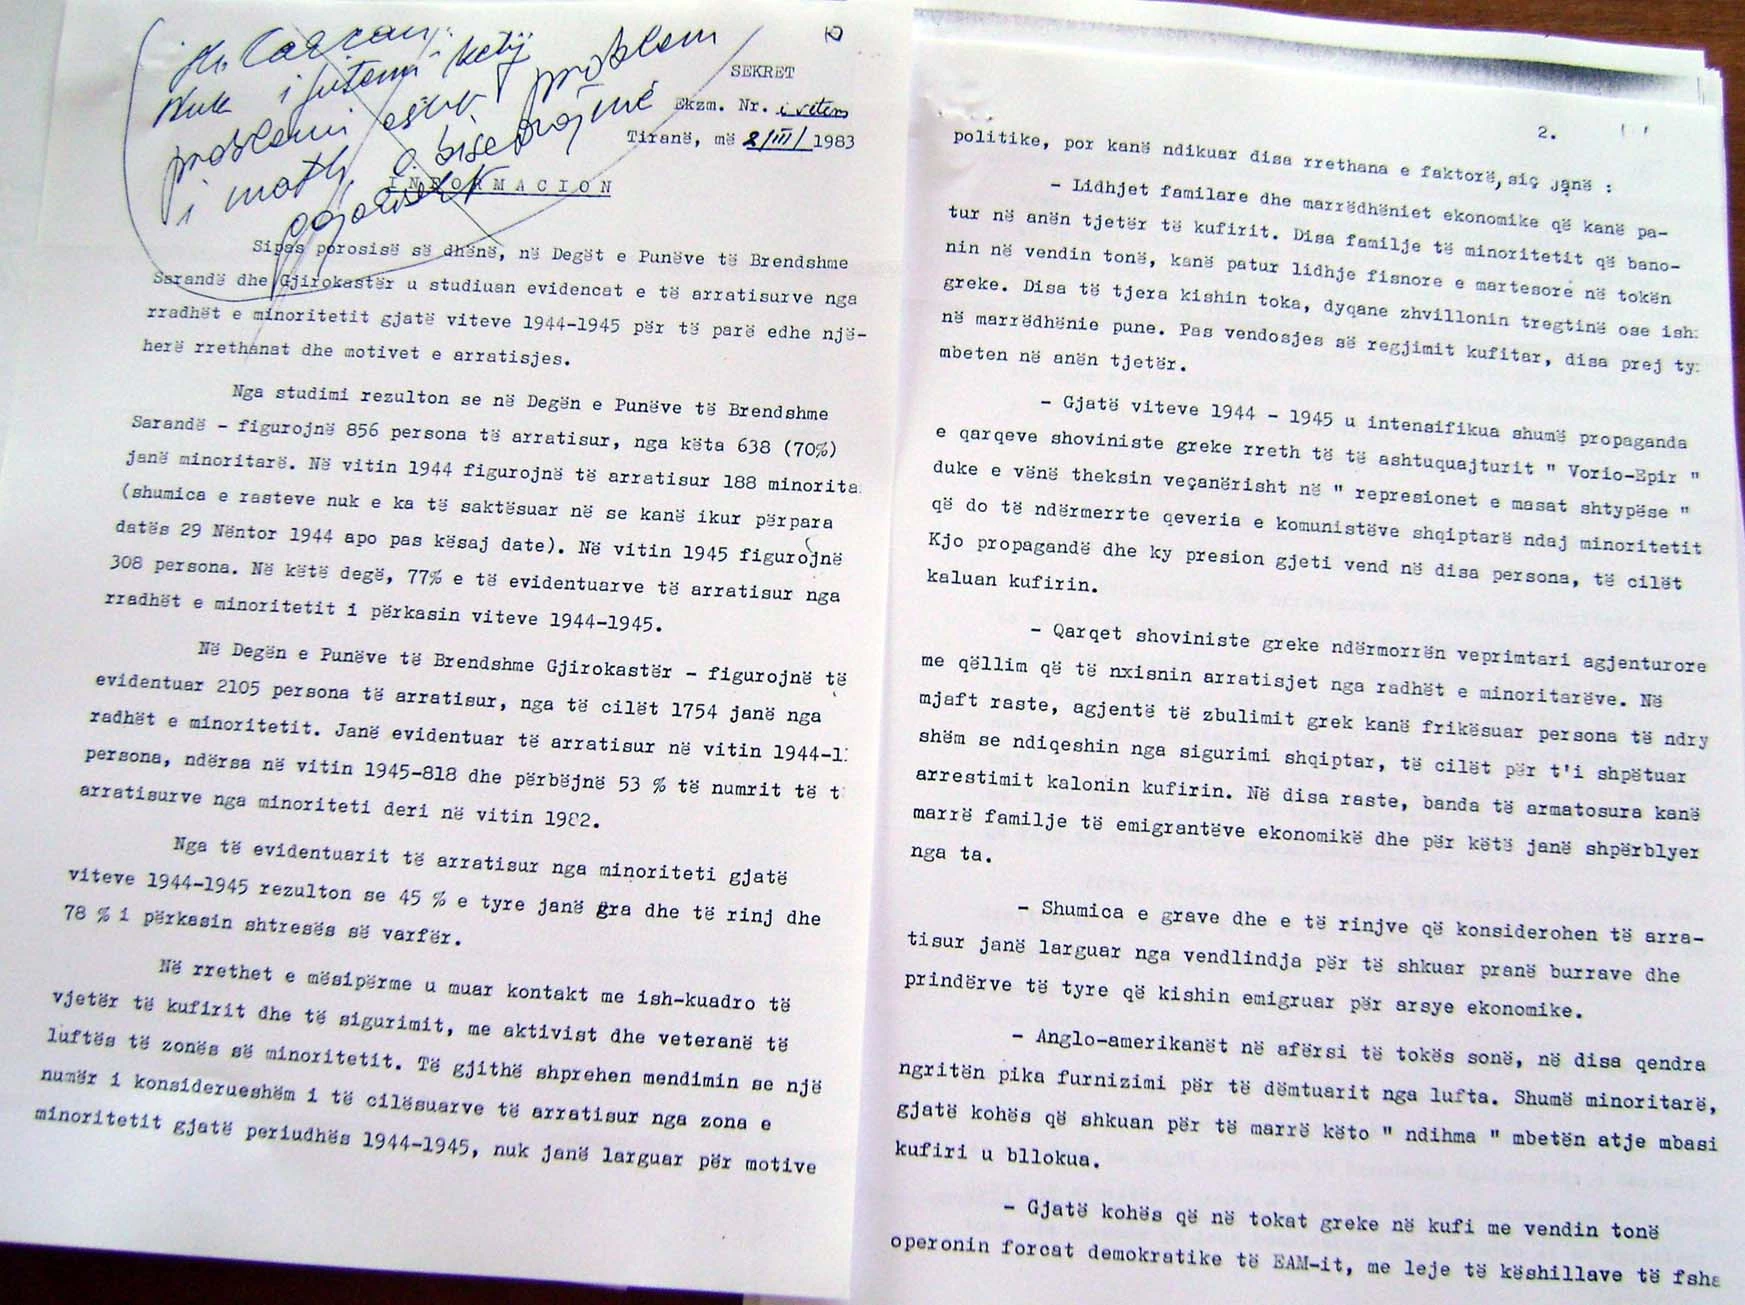 Nuk i futemi ketij
problemi është problem
i math, e bisedojmë
gojarisht
SEKRET
Ekzm. Nr. i vetem
Tiranë, më 2/III/ 1983
I N F O R M A C I O N
Sipas porosisë së dhënë, në Degët e Punëve të Brendshme
Sarandë dhe Gjirokastër u studiuan evidencat e të arratisurve nga
rradhët e minoritetit gjatë viteve 1944-1945 për të parë edhe një-
herë rrethanat dhe motivet e arratisjes.
Nga studimi rezulton se në Degën e Punëve të Brendshme
Sarandë - figurojnë 856 persona të arratisur, nga këta 638 (70%)
janë minoritarë. Në vitin 1944 figurojnë të arratisur 188 minorita
(shumica e rasteve nuk e ka të saktësuar në se kanë ikur përpara
datës 29 Nëntor 1944 apo pas kësaj date). Në vitin 1945 figurojnë
308 persona. Në këtë degë, 77% e të evidentuarve të arratisur nga
rradhët e minoritetit i përkasin viteve 1944-1945.
Në Degën e Punëve të Brendshme Gjirokastër - figurojnë të
evidentuar 2105 persona të arratisur, nga të cilët 1754 janë nga
radhët e minoritetit. Janë evidentuar të arratisur në vitin 1944-1
persona, ndërsa në vitin 1945-818 dhe përbëjnë 53 % të numrit të t
arratisurve nga minoriteti deri në vitin 1982.
Nga të evidentuarit të arratisur nga minoriteti gjatë
viteve 1944-1945 rezulton se 45 % e tyre janë gra dhe të rinj dhe
78 % i përkasin shtresës së varfër.
Në rrethet e mësipërme u muar kontakt me ish-kuadro të
vjetër të kufirit dhe të sigurimit, me aktivist dhe veteranë të
luftës të zonës së minoritetit. Të gjithë shprehen mendimin se një
numër i konsiderueshëm i të cilësuarve të arratisur nga zona e
minoritetit gjatë periudhës 1944-1945, nuk janë larguar për motive
2.
politike, por kanë ndikuar disa rrethana e faktorë, siç janë :
- Lidhjet familare dhe marrëdhëniet ekonomike që kanë pa-
tur në anën tjetër të kufirit. Disa familje të minoritetit që bano-
nin në vendin tonë, kanë patur lidhje fisnore e martesore në tokën
greke. Disa të tjera kishin toka, dyqane zhvillonin tregtinë ose ish
në marrëdhënie pune. Pas vendosjes së regjimit kufitar, disa prej ty
mbeten në anën tjetër.
- Gjatë viteve 1944 - 1945 u intensifikua shumë propaganda
e qarqeve shoviniste greke rreth të të ashtuquajturit " Vorio-Epir "
duke e vënë theksin veçanërisht në " represionet e masat shtypëse "
që do të ndërmerrte qeveria e komunistëve shqiptarë ndaj minoritetit
Kjo propagandë dhe ky presion gjeti vend në disa persona, të cilët
kaluan kufirin.
- Qarqet shoviniste greke ndërmorrën veprimtari agjenturore
me qëllim që të nxisnin arratisjet nga radhët e minoritarëve. Në
mjaft raste, agjentë të zbulimit grek kanë frikësuar persona të ndry
shëm se ndiqeshin nga sigurimi shqiptar, të cilët për t'i shpëtuar
arrestimit kalonin kufirin. Në disa raste, banda të armatosura kanë
marrë familje të emigrantëve ekonomikë dhe për këtë janë shpërblyer
nga ta.
- Shumica e grave dhe e të rinjve që konsiderohen të arra-
tisur janë larguar nga vendlindja për të shkuar pranë burrave dhe
prindërve të tyre që kishin emigruar për arsye ekonomike.
- Anglo-amerikanët në afërsi të tokës sonë, në disa qendra
ngritën pika furnizimi për të dëmtuarit nga lufta. Shumë minoritarë,
gjatë kohës që shkuan për të marrë këto " ndihma " mbetën atje mbasi
kufiri u bllokua.
- Gjatë kohës që në tokat greke në kufi me vendin tonë
operonin forcat demokratike të EAM-it, me leje të këshillave të fsha